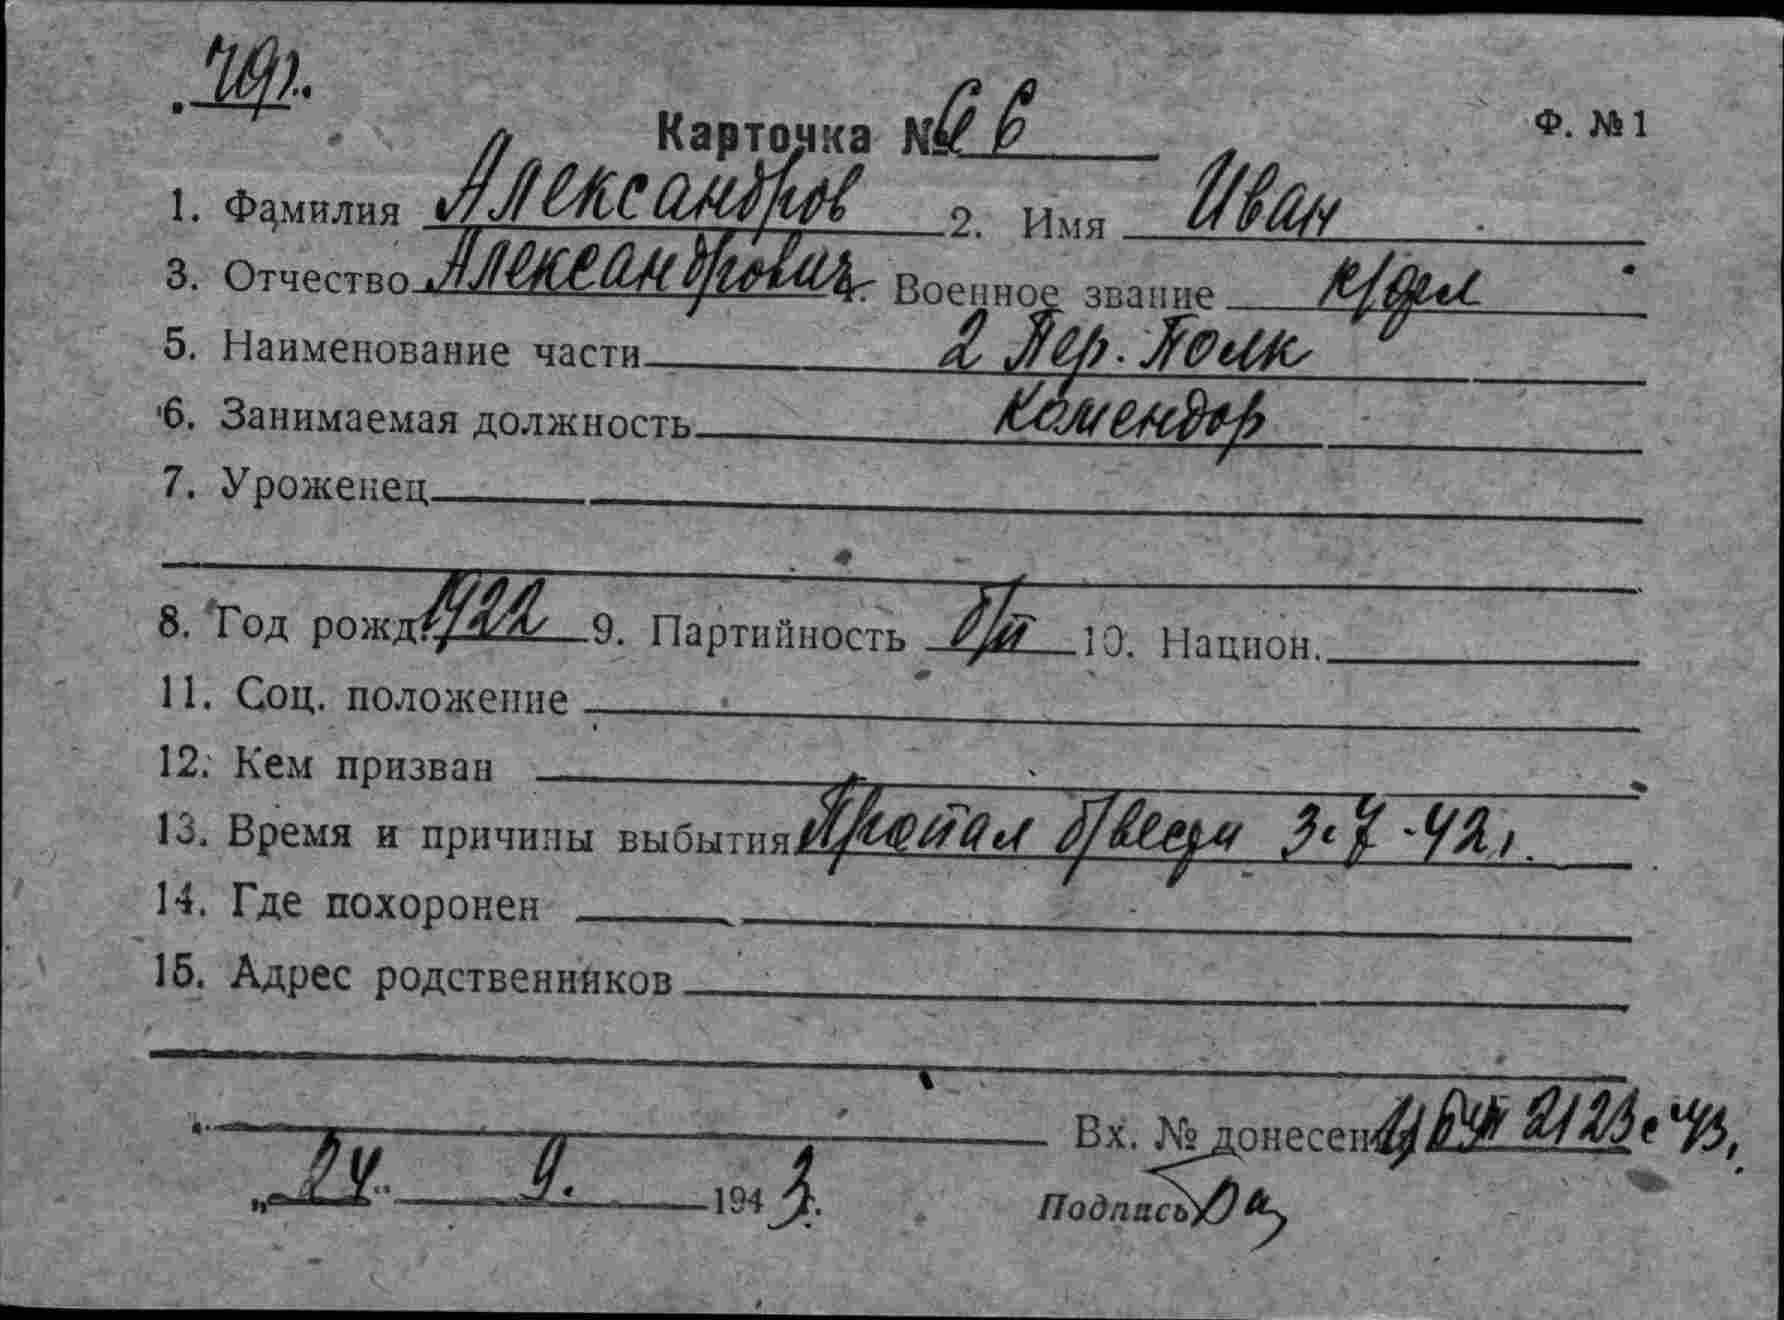 Карточка № 66
Ф. № 1
1. Фамилия Александров 2. Имя Иван
3. Отчество Александрович. Военное звание к/фл
5. Наименование части 2 Пер. Полк
6. Занимаемая должность комендор
7. Уроженец
8. Год рожд. 1922 9. Партийность б/п 10. Национ.
11. Соц. положение
12. Кем призван
13. Время и причины выбытия Пропал б/вести 3.7-42г.
14. Где похоронен
15. Адрес родственников
Вх. № донесен 2123с 43.
„24“ 9. 1943г.
Подпись